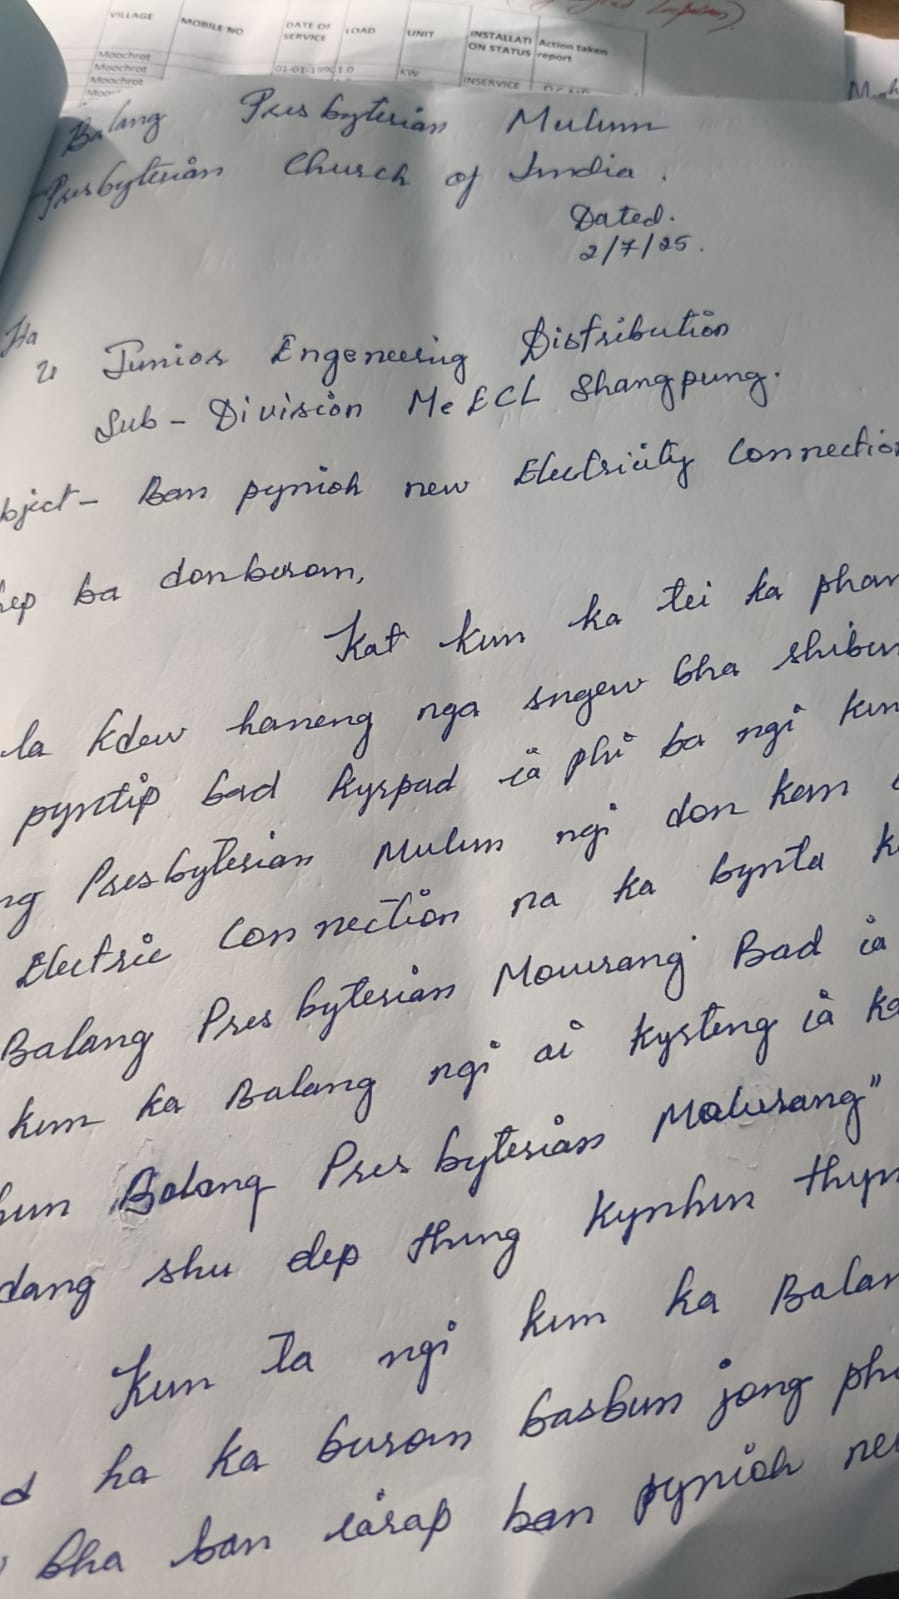 VILLAGE MOBILE NO DATE OF SERVICE LOAD UNIT INSTALLATI ON STATUS Action taken report
Moochrot
Moochrot 01-01-1990 1.0 KW INSERVICE
Moochrot
Balang Presbyterian Mulum
Presbyterian Church of India.
Dated.
2/7/25.
Ha
U Junior Engeneering Distribution
Sub-Division MeECL Shangpung.
bject- Ban pynioh new Electricity Connection
hep ba donburom,
Kat kum ka tei ka phan
la kdew haneng nga sngew bha shibun
pyntip bad kyrpad ïa phi ba ngi kum
ng Presbyterian Mulum ngi don kam
Electric Connection na ka bynta k
Balang Presbyterian Mowrang Bad ïa
kum ka Balang ngi ai kyrteng ïa ka
hum Balang Presbyterian Malurang"
dang shu dep thung kynhun thym
Kum ta ngi kum ka Balan
d ha ka burom basbun jong phi
bha ban ïarap ban pynioh new